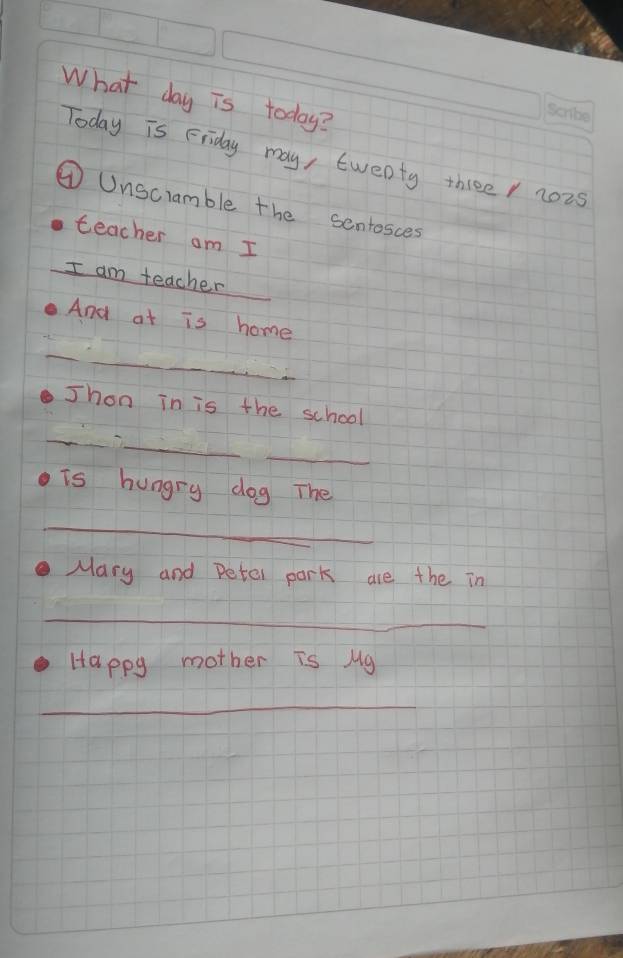 Scribe
What day is today?
Today is Friday may, twenty three, 2025
1 Unscramble the sentosces
• teacher am I
I am teacher
• And at is home
• Jhon in is the school
• is hungry dog The
• Mary and Peter park are the in
• Happy mother is My